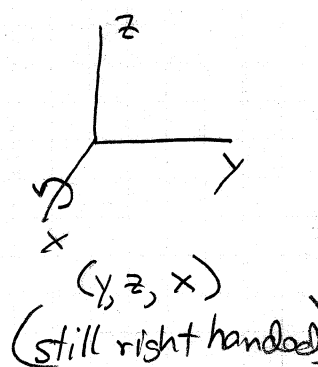 z
y
x
(y, z, x)
(still right handed)